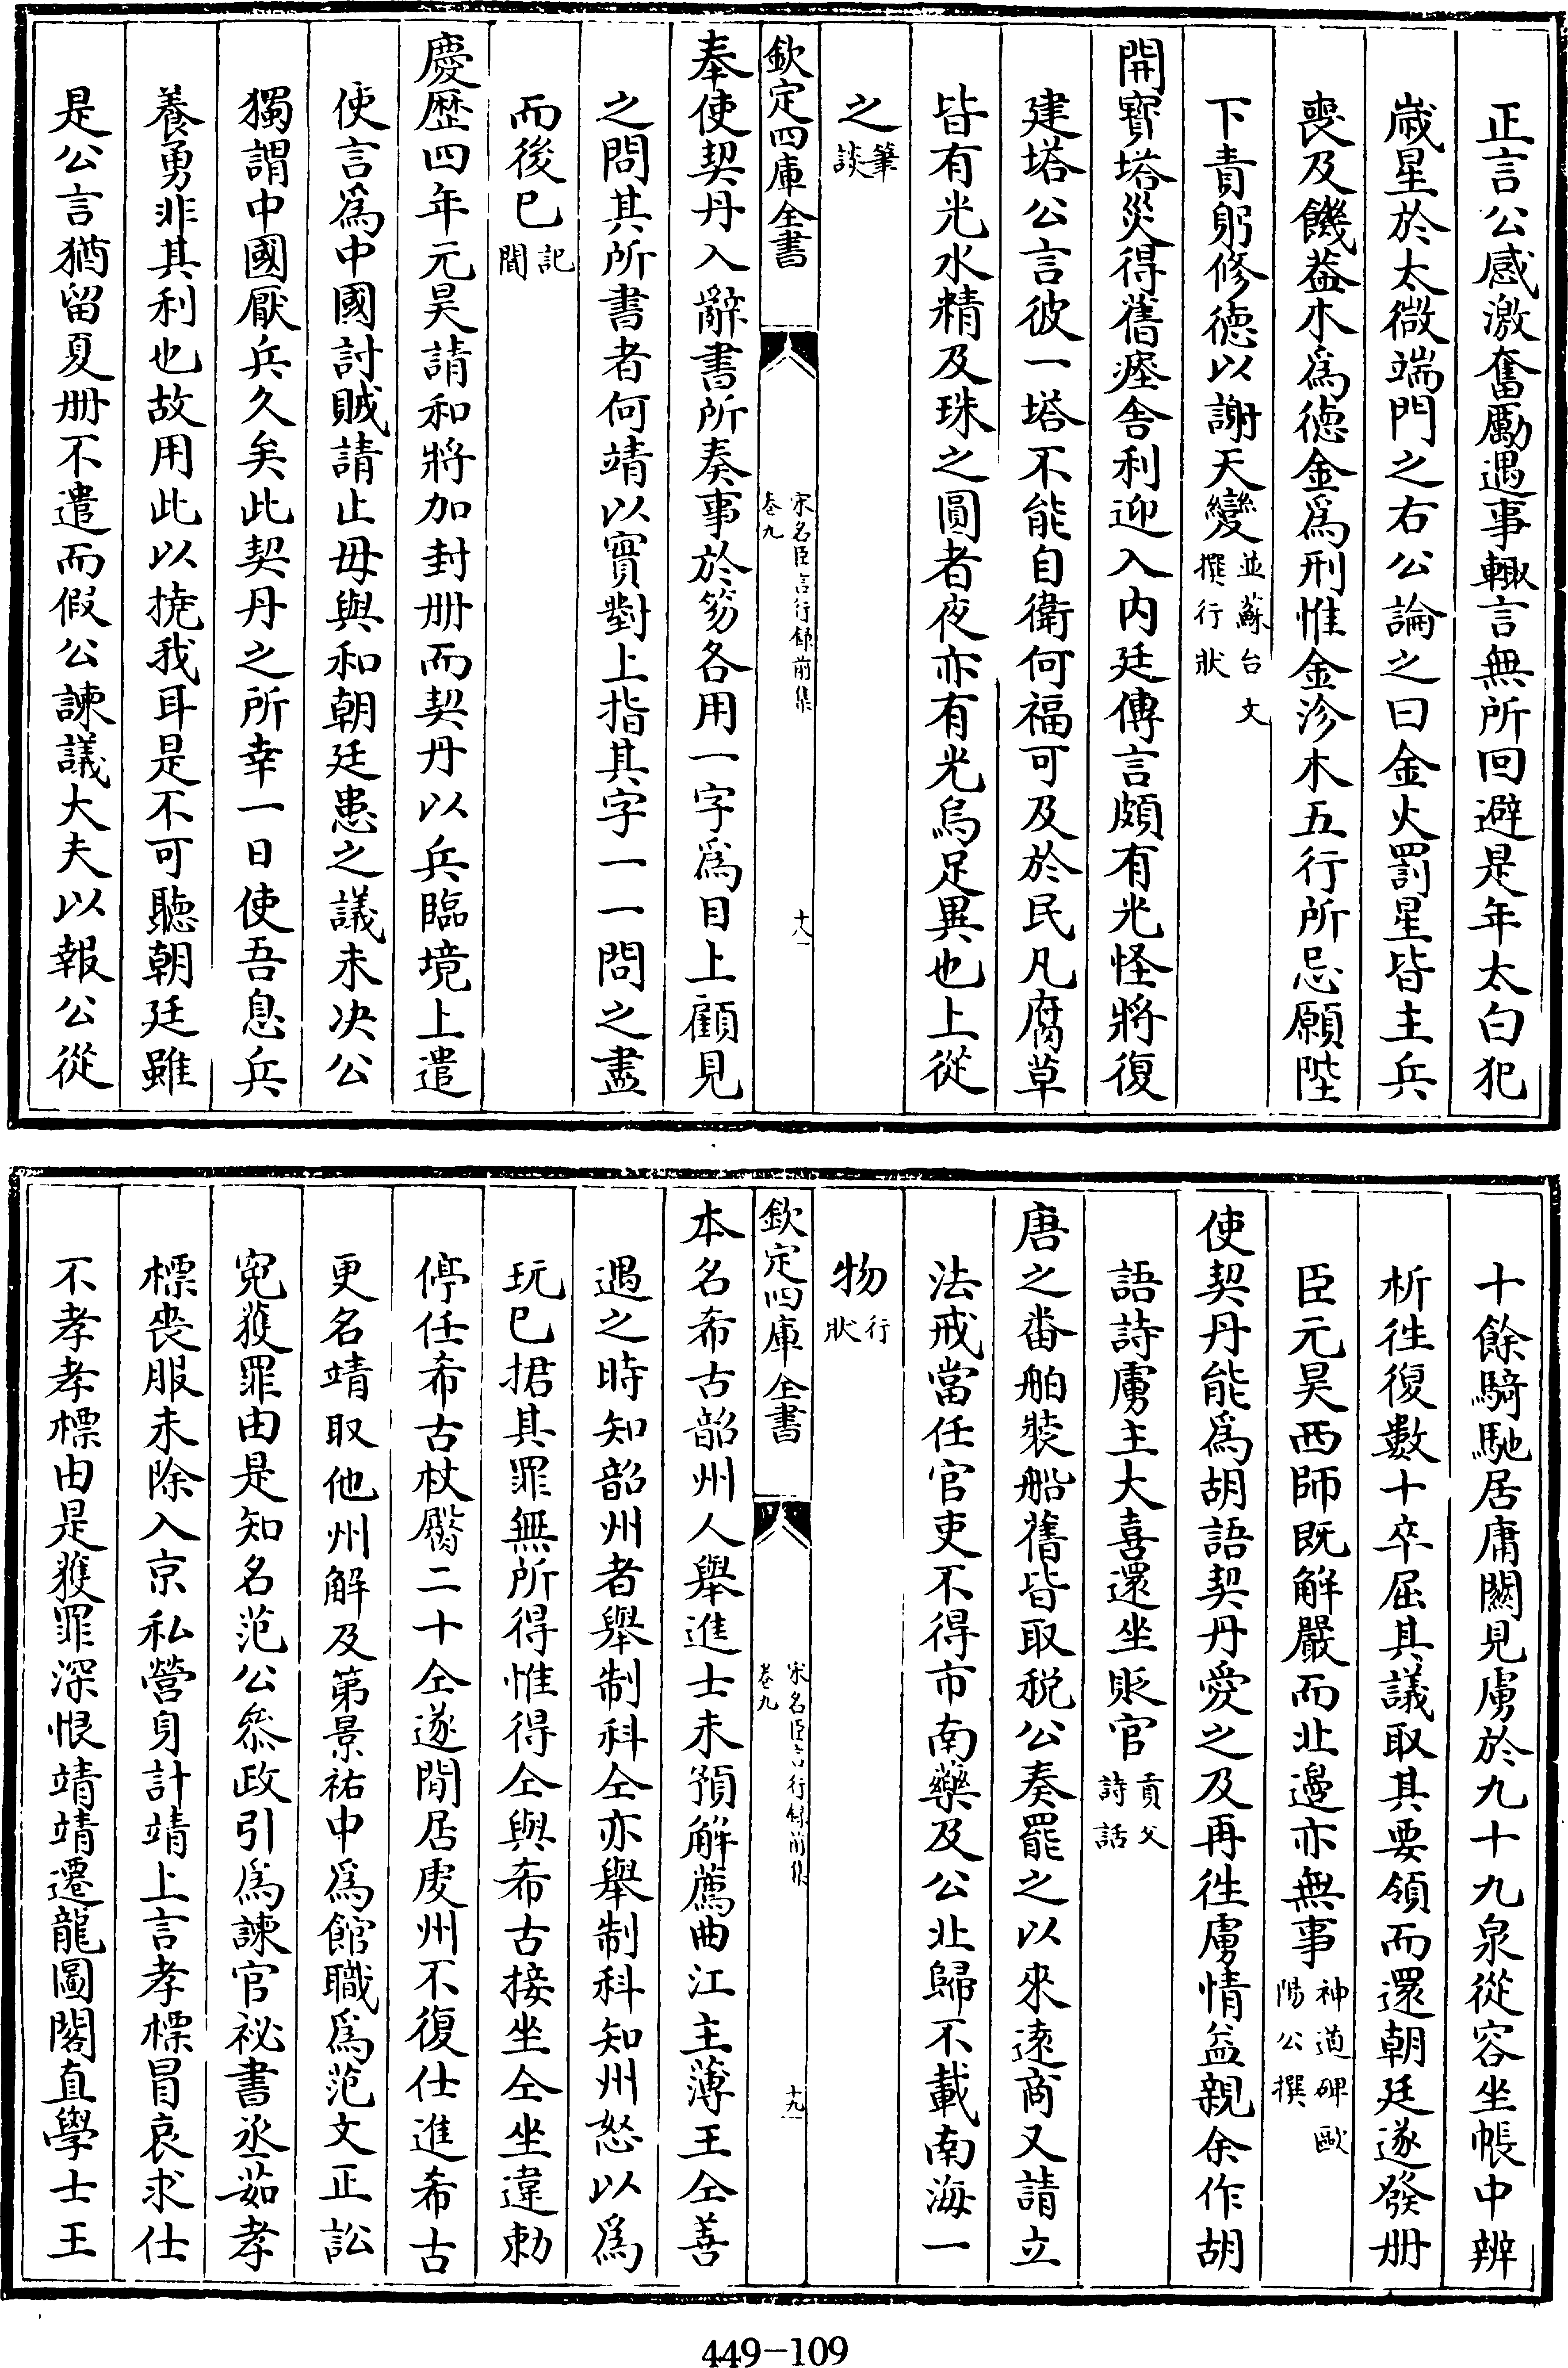 正言公感激奮勵遇事輙言無所回避是年太白犯
歲星於太微端門之右公論之曰金火罰星皆主兵
喪及饑葢木爲德金爲刑惟金沴木五行所忌願陛
下責躬修德以謝天變並蘇台文撰行狀
開寶塔災得舊瘞舎利迎入内廷傳言頗有光怪將復
建塔公言彼一塔不能自衛何福可及於民凡腐草
皆有光水精及珠之圓者夜亦有光烏足異也上從
之筆談
欽定四庫全書
宋名臣言行錄前集
卷九
十八
奉使契丹入辭書所奏事於笏各用一字爲目上顧見
之問其所書者何靖以實對上指其字一一問之盡
而後已記聞
慶歷四年元昊請和將加封册而契丹以兵臨境上遣
使言爲中國討賊請止毋與和朝廷患之議未决公
獨謂中國厭兵久矣此契丹之所幸一日使吾息兵
養勇非其利也故用此以撓我耳是不可聽朝廷雖
是公言猶留夏册不遣而假公諫議大夫以報公從
十餘騎馳居庸關見虜於九十九泉從容坐帳中辨
析徃復數十卒屈其議取其要領而還朝廷遂發册
臣元昊西師既解嚴而北邊亦無事神道碑歐陽公撰
使契丹能爲胡語契丹愛之及再徃虜情益親余作胡
語詩虜主大喜還坐貶官貢父詩話
唐之畨舶裝船舊皆取稅公奏罷之以來遠商又請立
法戒當任官吏不得市南藥及公北歸不載南海一
物行狀
欽定四庫全書
宋名臣言行錄前集
卷九
十九
本名希古韶州人舉進士未預解薦曲江主薄王仝善
遇之時知韶州者舉制科仝亦舉制科知州怒以爲
玩已捃其罪無所得惟得仝與希古接坐仝坐違勅
停任希古杖臀二十仝遂閒居虔州不復仕進希古
更名靖取他州解及第景祐中爲館職爲范文正訟
寃獲罪由是知名范公叅政引爲諫官祕書丞茹孝
標喪服未除入京私營身計靖上言孝標冒哀求仕
不孝孝標由是獲罪深恨靖靖遷龍圖閣直學士王
449-109